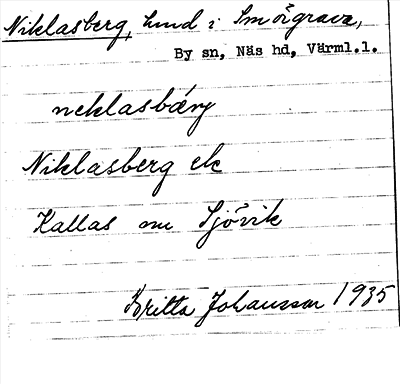 Niklasberg, hmd i Smörgrava,
By sn, Näs hd, Värml.l.
neklasbærj
Niklasberg ek
Kallas nu Sjövik
Britta Johansson 1935